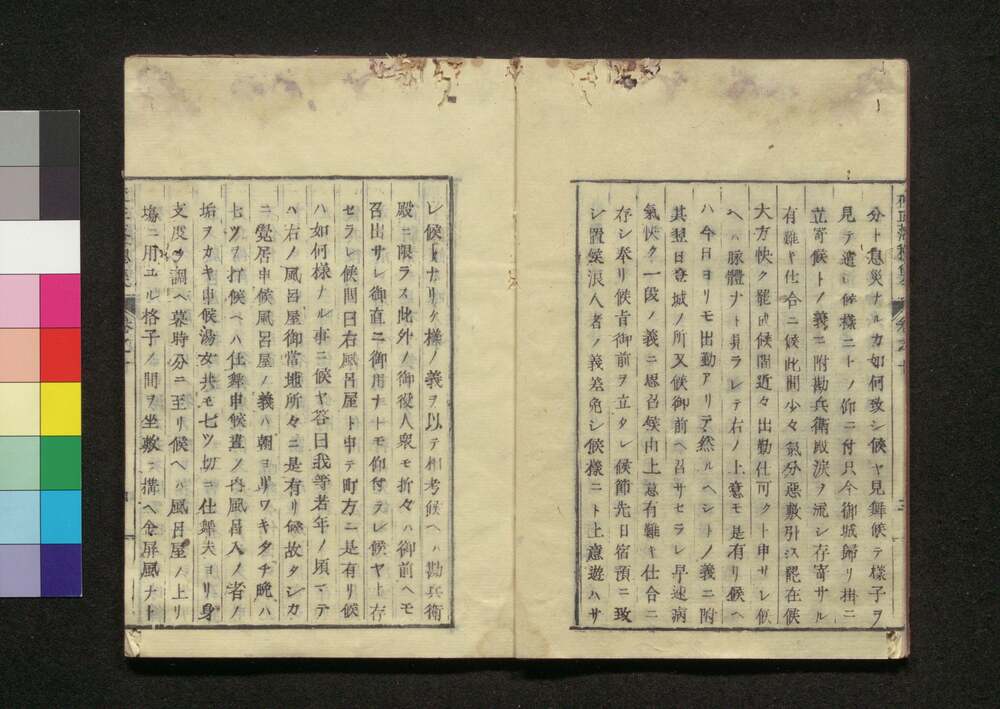 分ト息災ナルカ如何致シ候ヤ見舞候テ様子ヲ
見テ遣シ候様ニトノ仰ニ付只今御城歸リ掛ニ
立寄候トノ義ニ附勘兵衛殿涙ヲ流シ存寄サル
有難キ仕合ニ候此間少々氣分惡敷引込罷在候
大方快ク罷成候間近々出勤仕可クト申サレ候
ヘハ脉體ナト見ラレテ右ノ上意モ是有リ候ヘ
ハ今日ヨリモ出勤アリテ然ルヘシトノ義ニ附
其翌日登城ノ所又候御前ヘ召サセラレ早速病
氣快ク一段ノ義ニ思召候由上意有難キ仕合ニ
存シ奉リ候旨御前ヲ立タレ候節先日宿預ニ致
シ置候浪人者ノ義差免シ候様ニト上意遊ハサ
レ候トナリケ様ノ義ヲ以テ相考候ヘハ勘兵衛
殿ニ限ラス此外ノ御役人衆モ折々ハ御前ヘモ
召出サレ御直ニ御用ナトモ仰付ラレ候ヤト存
セラレ候問曰右風呂屋ト申テ町方ニ是有リ候
ハ如何様ナル事ニ候ヤ答曰我等若年ノ頃マテ
ハ右ノ風呂屋御當地所々ニ是有リ候故タシカ
ニ覺居申候風呂屋ノ義ハ朝ヨリワキタチ晩ハ
七ツヲ打候ヘハ仕舞申候晝ノ内風呂入ノ者ノ
垢ヲカキ申候湯女共モ七ツ切ニ仕舞夫ヨリ身
支度ヲ調ヘ暮時分ニ至リ候ヘハ風呂屋ノ上リ
場ニ用ユル格子ノ間ヲ坐敷ニ搆ヘ金屏風ナト